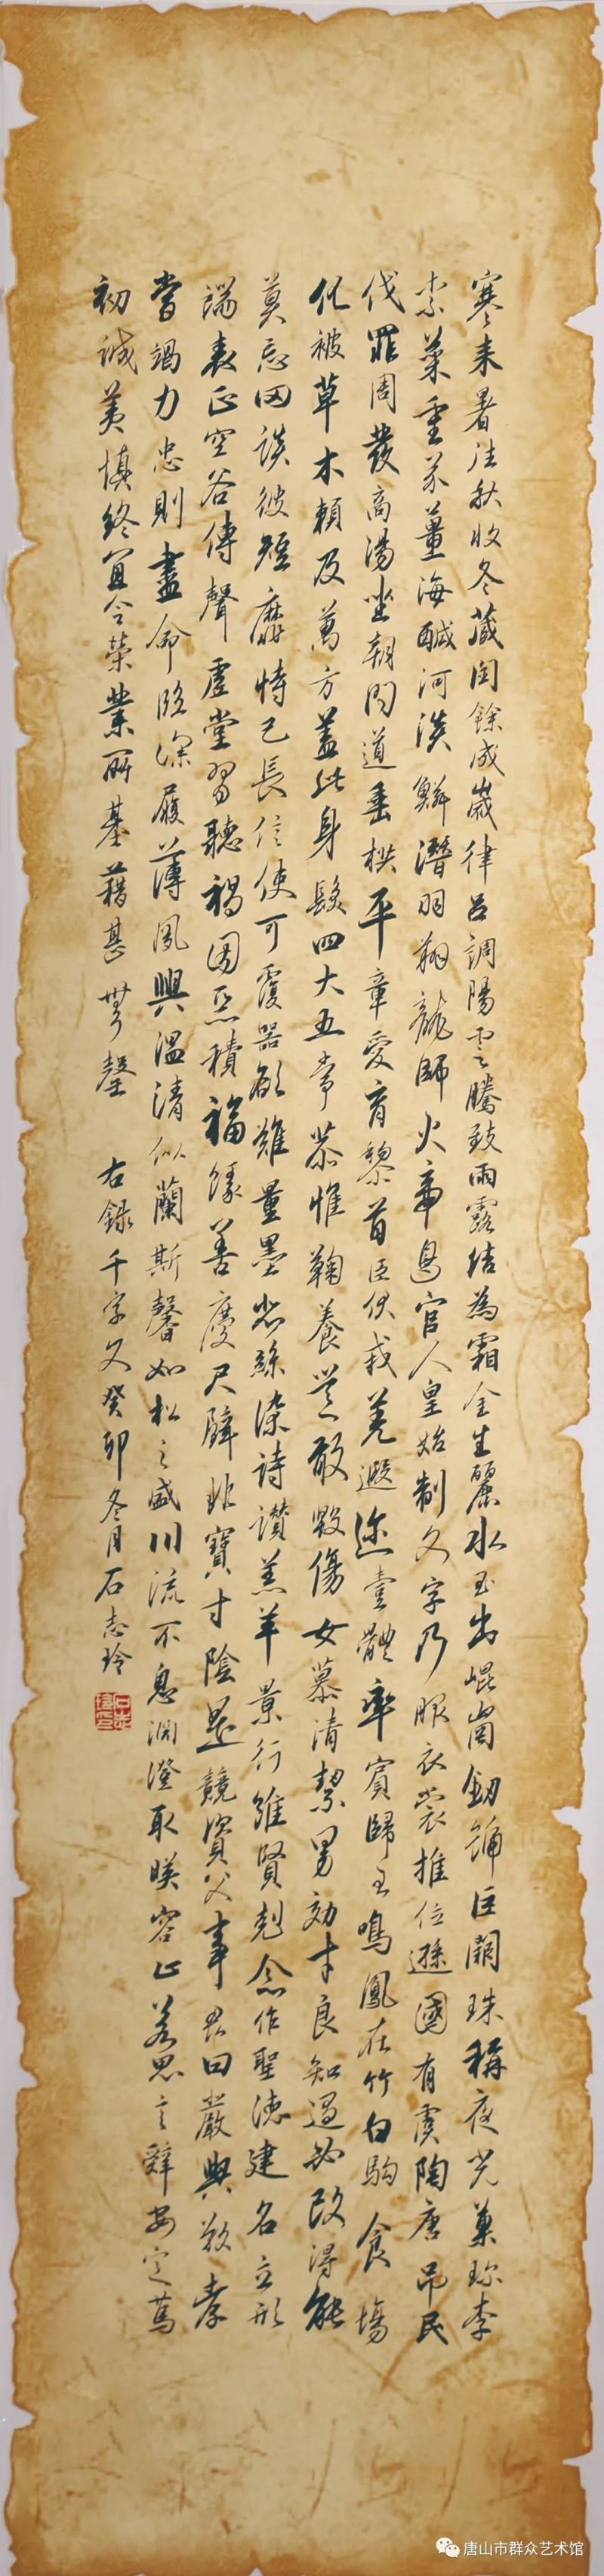 寒来暑往秋收冬藏閏餘成歲律吕調陽雲騰致雨露结為霜金生麗水玉出崐崗劒號巨闕珠稱夜光菓珍李
柰菜重芥薑海醎河淡鱗潛羽翔龍師火帝鳥官人皇始制文字乃服衣裳推位遜國有虞陶唐吊民
伐罪周發商湯坐朝問道垂拱平章愛育黎首臣伏戎羌遐迩壹體率賓歸王鳴鳳在竹白駒食場
化被草木賴及萬方蓋此身髮四大五常恭惟鞠養豈敢毀傷女慕清絜男効才良知過必改得能
莫忘罔談彼短靡恃己長信使可覆器欲難量墨悲絲染詩讚羔羊景行維賢剋念作聖德建名立形
端表正空谷傳聲虛堂習聽禍因惡積福緣善慶尺璧非寶寸陰是競資父事君曰嚴與敬孝
當竭力忠則盡命臨深履薄夙興温清似蘭斯馨如松之盛川流不息淵澄取暎容止若思言辭安定篤
初誠美慎終宜令榮業所基藉甚無 右録千字文癸卯冬月石志玲
唐山市群众艺术馆